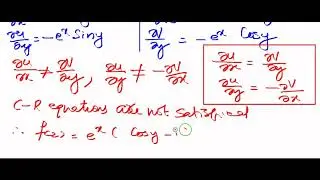 ∂u/∂y = -eˣ Siny | ∂V/∂y = -eˣ Cosy
∂u/∂x ≠ ∂V/∂y, ∂u/∂y ≠ -∂V/∂x
∂u/∂x = ∂V/∂y
∂u/∂y = -∂V/∂x
C-R equations are not satisfied
∴ f(z) = eˣ ( Cosy -